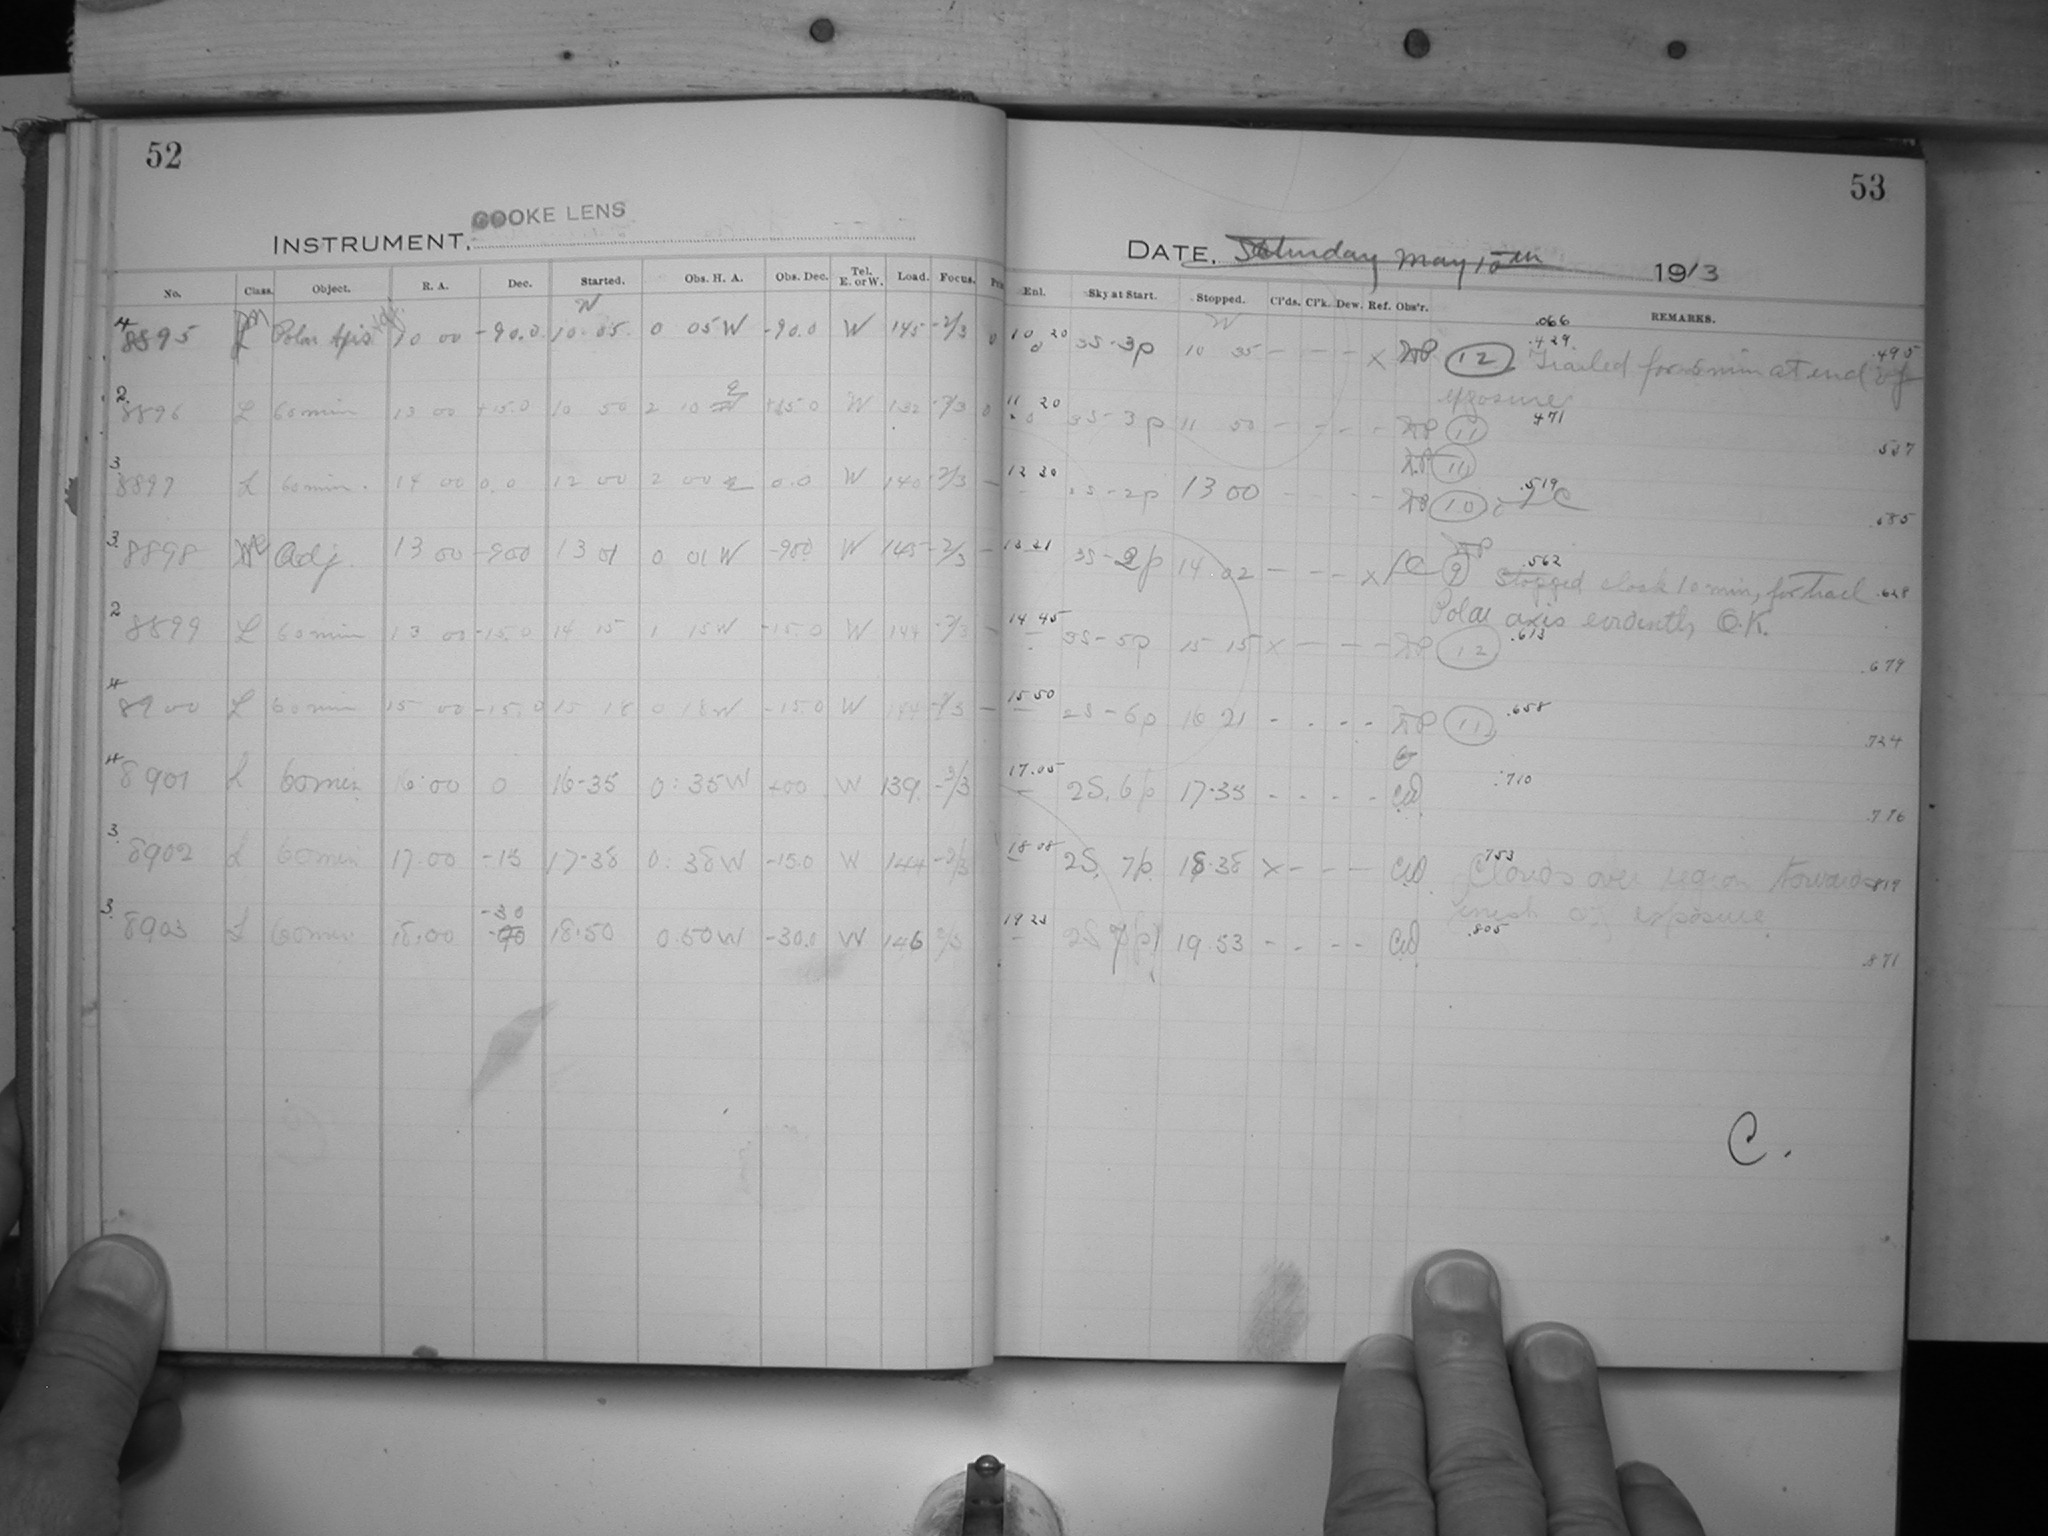 52
COOKE LENS
INSTRUMENT.
No. Class. Object. R. A. Dec. Started. Obs. H. A. Obs. Dec. Tel. E. or W. Load. Focus.
8895 Polar Axis 10 00 -90.0 10 05 0 05 W -90.0 W 145 -2/3 0
8896 L 60 min 13 00 +15.0 10 50 2 10 W 132 -2/3 0
8897 L 60 min. 14 00 0.0 12 00 2 00 0.0 W 140 -2/3 -
8898 Adj. 13 00 -900 13 01 0 01 W -900 W 145 -2/3 -
8899 L 60 min 13 00 -15.0 14 15 1 15 W -15.0 W 144 -2/3 -
8900 L 60 min 15 00 -15.0 15 18 0 18 W -15.0 W 144 -2/3 -
8901 L 60 min 16 00 0 16-35 0:35 W +00 W 139 -2/3
8902 L 60 min 17.00 -15 17-38 0:38 W -15.0 W 144 -2/3
8903 L 60 min 18.00 -30 18.50 0.50 W -30.0 W 146
53
DATE. Saturday May 1913
Enl. Sky at Start. Stopped. Cl'ds. Cl'k. Dew. Ref. Obs'r. REMARKS.
10 20 3S-3p 10 35 - - - x 12 .066 .429 Trailed for 5 min at end of .495
exposure
11 20 3S-3p 11 50 - - - - 11 .471 .537
11
12 30 2S-2p 13 00 - - - - 10 .519 .585
13 31 3S-2p 14 02 - - - x 9 .562 Stopped clock 10 min, for trail .628
Polar axis evidently O.K.
14 45 3S-5p 15 15 x - - - 12 .613 .679
15 50 2S-6p 16 21 - - - - 11 .658 .724
17.05 2S, 6p 17-35 - - - - .710 .776
18 08 2S, 7p 18-38 x - - - .753 Clouds over region towards .819
finish of exposure
19 23 2S 7p 19.53 - - - - .805 .871
C.